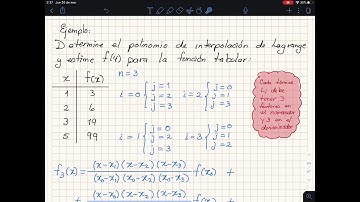 2:37 Jue 26 de nov
Ejemplo:
Determine el polinomio de interpolación de Lagrange
y estime f(4) para la función tabular:
x f(x)
1 3
2 6
3 19
5 99
n = 3
i = 0 { j = 1 j = 2 j = 3
i = 2 { j = 0 j = 1 j = 3
i = 1 { j = 0 j = 2 j = 3
i = 3 { j = 0 j = 1 j = 2
Cada término
Lj debe
tener 3
factores en
el numerador
y 3 en el
denominador
f₃(x) = (x-x₁)(x-x₂)(x-x₃) / (x₀-x₁)(x₀-x₂)(x₀-x₃) f(x₀) +
+ (x-x₀)(x-x₂)(x-x₃) f(x₁) +